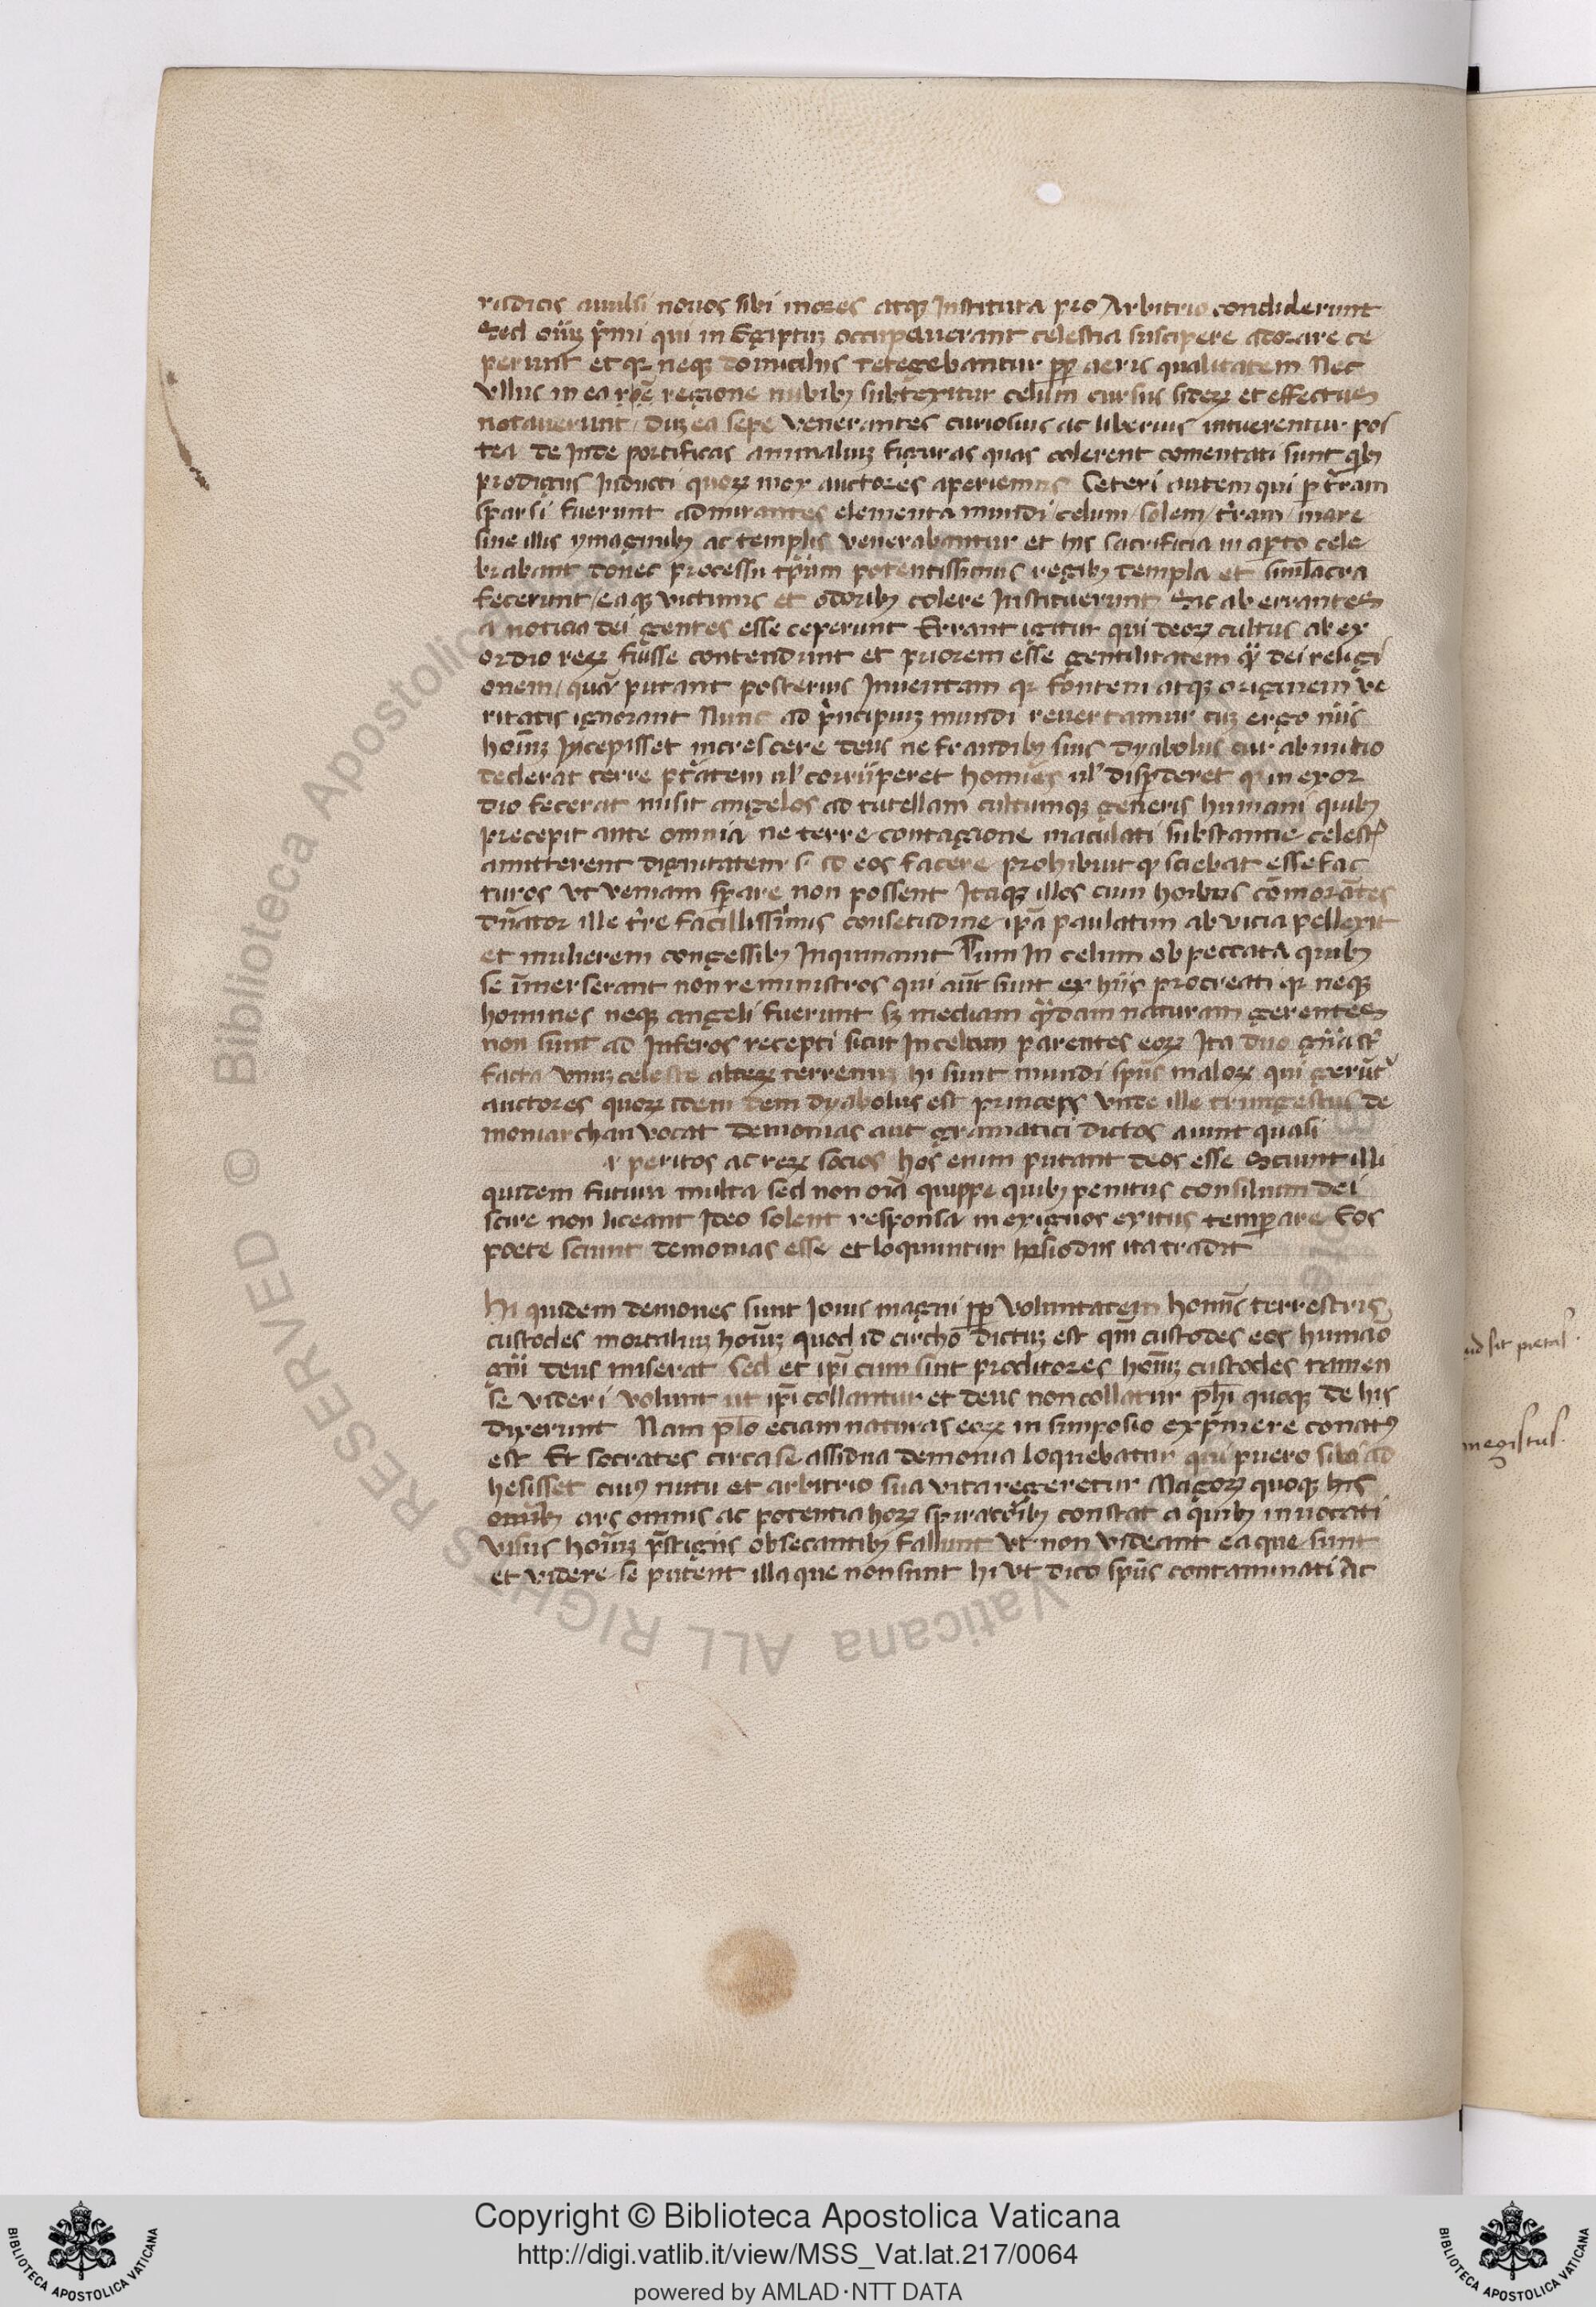 radicis auulsi nouos sibi mores atqꝫ Instituta pro Arbitrio condiderunt
Sed oīuꝫ pͥmi qui in Egiptuꝫ occupauerant celestia suscipere adorare ce
perunt et qꝛ neqꝫ domiciliis tetegebantur ꝓp aeris qualitatem Nec
vllus in ea regione nubibꝫ subtexitur celum cursus sideꝝ et effectus
notauerunt / Duꝫ ea sepe venerantes curiosius ac liberius intuerentur pos
tea de Inde portificas animaliuꝫ figuras quas colerent comentati sunt qͥbꝫ
prodigiis Inducti quoꝝ mox auctores aperiemus Ceteri autem qui ꝑ tr̄am
sparsi fuerunt admirantes elementa mundi / celum / solem / tr̄am / mare
sine illis ymaginibꝫ ac templis venerabantur et his sacrificia in aꝑto cele
brabant donec processu tp̄um potentissimis regibꝫ templa et simlacra
fecerunt / eaqꝫ victimis et odoribꝫ colere Instituerunt Sic ab errantes
a noticia dei gentes esse ceperunt Errant igitur qui deoꝝ cultus ab ex
ordio reꝝ fuisse contendunt et priorem esse gentilitatem qͣ dei religi
onem / quā putant posterius Inuentam qꝛ fontem atqꝫ originem ve
ritatis ignorant Nunc ad pͥncipiuꝫ mundi reuertamur cuꝫ ergo nūs
hoīuꝫ Incepisset increscere deus ne fraudibꝫ suis dyabolus cur ab initio
dederat terre ptātem ul' corrūperet homīes ul' disꝑderet qͣ in exor
dio fecerat misit angelos ad tutellam cultumqꝫ generis humani quibꝫ
precepit ante omnia ne terre contagione maculati substantie celest'
amitterent dignitatem s' id eos facere prohibuit qͣ sciebat esse fac
turos vt veniam sꝑare non possent Itaqꝫ illos cum hoībus cōmorātes
dn̄ator ille tr̄e facillissimus consetudine ip̄a paulatim ab vicia pellexit
et mulierem congessibꝫ Inquinauit Tum In celum ob peccata quibꝫ
se īmerserant non re ministros qui aūt sunt ex hiis procreati qꝛ neqꝫ
homines neqꝫ angeli fuerunt sꝫ mediam qͣdam naturam gerentes
non sunt ad Inferos recepti sicut In celum parentes eoꝝ Ita duo gn̄a sͭ
facta vnuꝫ celeste alteꝝ terrenuꝫ hi sunt mundi spūs maloꝝ qui gerūtͬ
auctores quoꝝ idem dem dyabolus est princeps vnde ille trimgestus de
moniarchan vocat demonias aut gramatici dictos aiunt quasi
peritos ac reꝝ socios hos enim putant deos esse Sciunt illi
quidem futura multa sed non oīa quippe quibꝫ penitus consilium dei
scire non liceant Ideo solent responsa in exiguos exitus temꝑare Eos
poete sciunt demonias esse et loquuntur hesiodus ita tradit
Hi quidem demones sunt Iouis magni ꝓp voluntatem homīs terrestris
custodes mortaliuꝫ hoīuꝫ quod id circho dictuꝫ est qm̄ custodes eos humāo
gn̄i deus miserat Sed et ip̄i cum sint proditores hoīuꝫ custodes tamen
se videri volunt ut ip̄i collantur et deus non collatur ph̄i quoqꝫ de his
dixerunt Nam p̄lo eciam naturas eoꝝ in simposio expͥmere conatꝰ
est Et socrates circa se assidua demonia loquebatur qui puero sibi ad
hesisset cuiꝰ nutu et arbitrio sua vita regeretur Magoꝝ quoqꝫ his
omibꝫ ars omnis ac potentia hoꝝ spiratōibꝫ constat a quibꝫ inuocati
visus hoīuꝫ p̄stigiis obsecantibꝫ fallunt vt non videant ea que sunt
et videre se putent illa que non sunt hi vt dico spūs contaminati ac
ud sit pietas.
megistus.
Copyright © Biblioteca Apostolica Vaticana
http://digi.vatlib.it/view/MSS_Vat.lat.217/0064
powered by AMLAD·NTT DATA
BIBLIOTECA APOSTOLICA VATICANA
BIBLIOTECA APOSTOLICA VATICANA